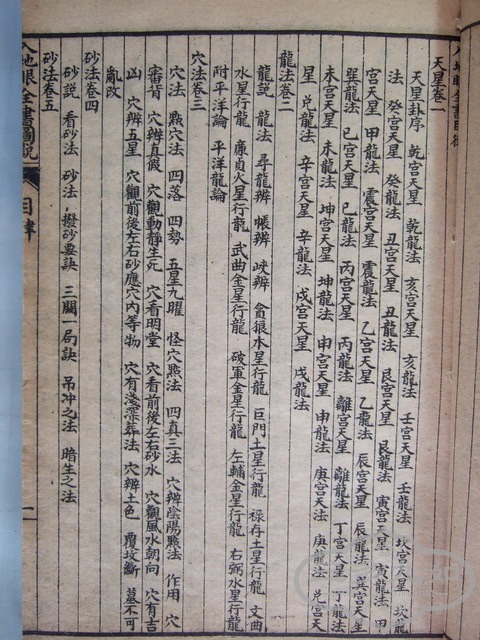 天星卷一
天星卦序 乾宮天星 乾龍法 亥宮天星 亥龍法 壬宮天星 壬龍法 坎宮天星 坎龍
法 癸宮天星 癸龍法 丑宮天星 丑龍法 艮宮天星 艮龍法 寅宮天星 寅龍法 甲
宮天星 甲龍法 震宮天星 震龍法 乙宮天星 乙龍法 辰宮天星 辰龍法 巽宮天星
巽龍法 巳宮天星 巳龍法 丙宮天星 丙龍法 離宮天星 離龍法 丁宮天星 丁龍法
未宮天星 未龍法 坤宮天星 坤龍法 申宮天星 申龍法 庚宮天法 庚龍法 兌宮天
星 兌龍法 辛宮天星 辛龍法 戌宮天星 戌龍法
龍法卷二
龍說 龍法 尋龍辨 帳辨 峽辨 貪狼木星行龍 巨門土星行龍 祿存土星行龍 文曲
水星行龍 廉貞火星行龍 武曲金星行龍 破軍金星行龍 左輔金星行龍 右弼水星行龍
附平洋論 平洋龍論
穴法卷三
穴法 點穴法 四落 四勢 五星九曜 怪穴點法 四真三法 穴辨陰陽點法 作用 穴
審背 穴辨真假 穴觀動靜生死 穴看明堂 穴看前後左右砂水 穴觀風水朝向 穴有吉
凶 穴辨五星 穴觀前後左右砂應穴內等物 穴有淺深葬法 穴辨土色 覆坟斷 墓不可
亂改
砂法卷四
砂說 看砂法 砂法 撥砂要訣 三關 局訣 吊冲之法 暗生之法
砂法卷五
入地眼全書圖說
目錄
一